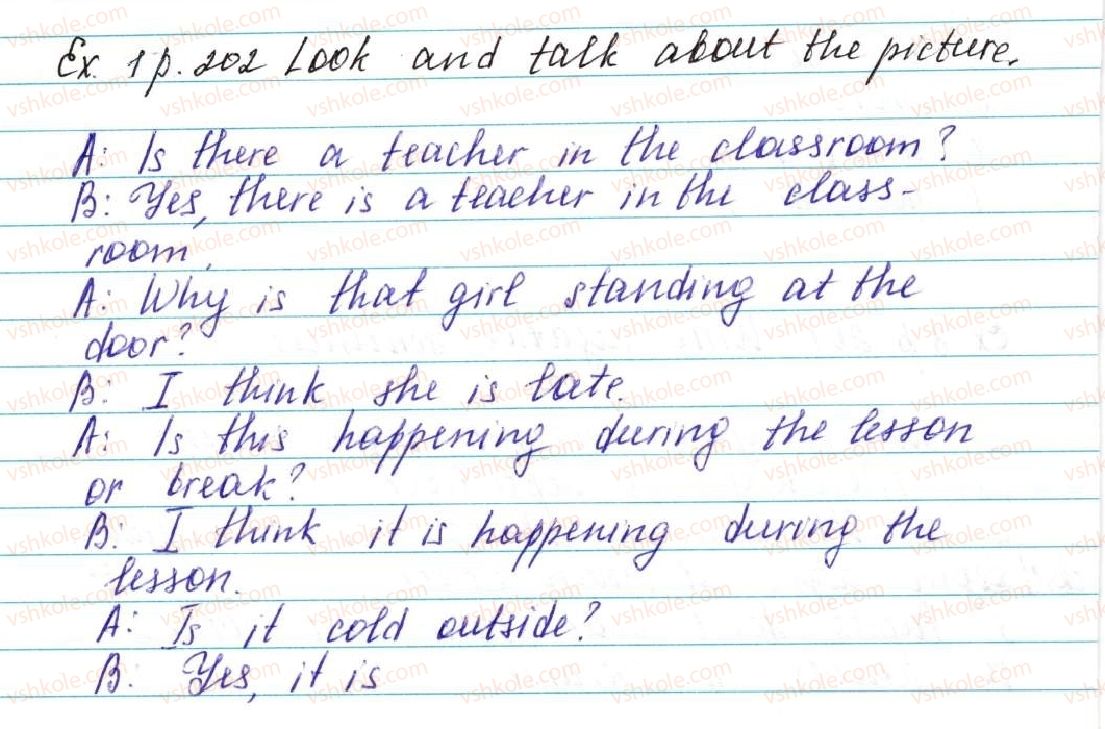 Ex. 1 p. 202 Look and talk about the picture.
A: Is there a teacher in the classroom?
B: Yes, there is a teacher in the class-
room.
A: Why is that girl standing at the
door?
B: I think she is late.
A: Is this happening during the lesson
or break?
B: I think it is happening during the
lesson.
A: Is it cold outside?
B. Yes, it is